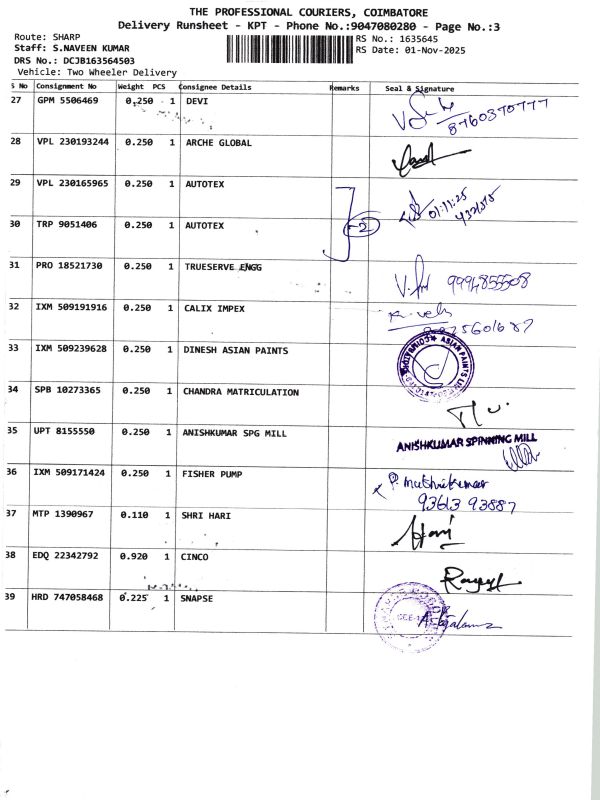 THE PROFESSIONAL COURIERS, COIMBATORE
Delivery Runsheet - KPT - Phone No.:9047080280 - Page No.:3
Route: SHARP
Staff: S.NAVEEN KUMAR
DRS No.: DCJB163564503
Vehicle: Two Wheeler Delivery
RS No.: 1635645
RS Date: 01-Nov-2025
S No Consignment No Weight PCS Consignee Details Remarks Seal & Signature
27 GPM 5506469 0.250 1 DEVI 8760370777
28 VPL 230193244 0.250 1 ARCHE GLOBAL
29 VPL 230165965 0.250 1 AUTOTEX 01:11:25
30 TRP 9051406 0.250 1 AUTOTEX 2
31 PRO 18521730 0.250 1 TRUESERVE ENGG 9994855508
32 IXM 509191916 0.250 1 CALIX IMPEX
33 IXM 509239628 0.250 1 DINESH ASIAN PAINTS ASIAN PAINTS
34 SPB 10273365 0.250 1 CHANDRA MATRICULATION
35 UPT 8155550 0.250 1 ANISHKUMAR SPG MILL ANISHKUMAR SPINNING MILL
36 IXM 509171424 0.250 1 FISHER PUMP P. Muthukumar
93613 93887
37 MTP 1390967 0.110 1 SHRI HARI Hari
38 EDQ 22342792 0.920 1 CINCO
39 HRD 747058468 0.225 1 SNAPSE